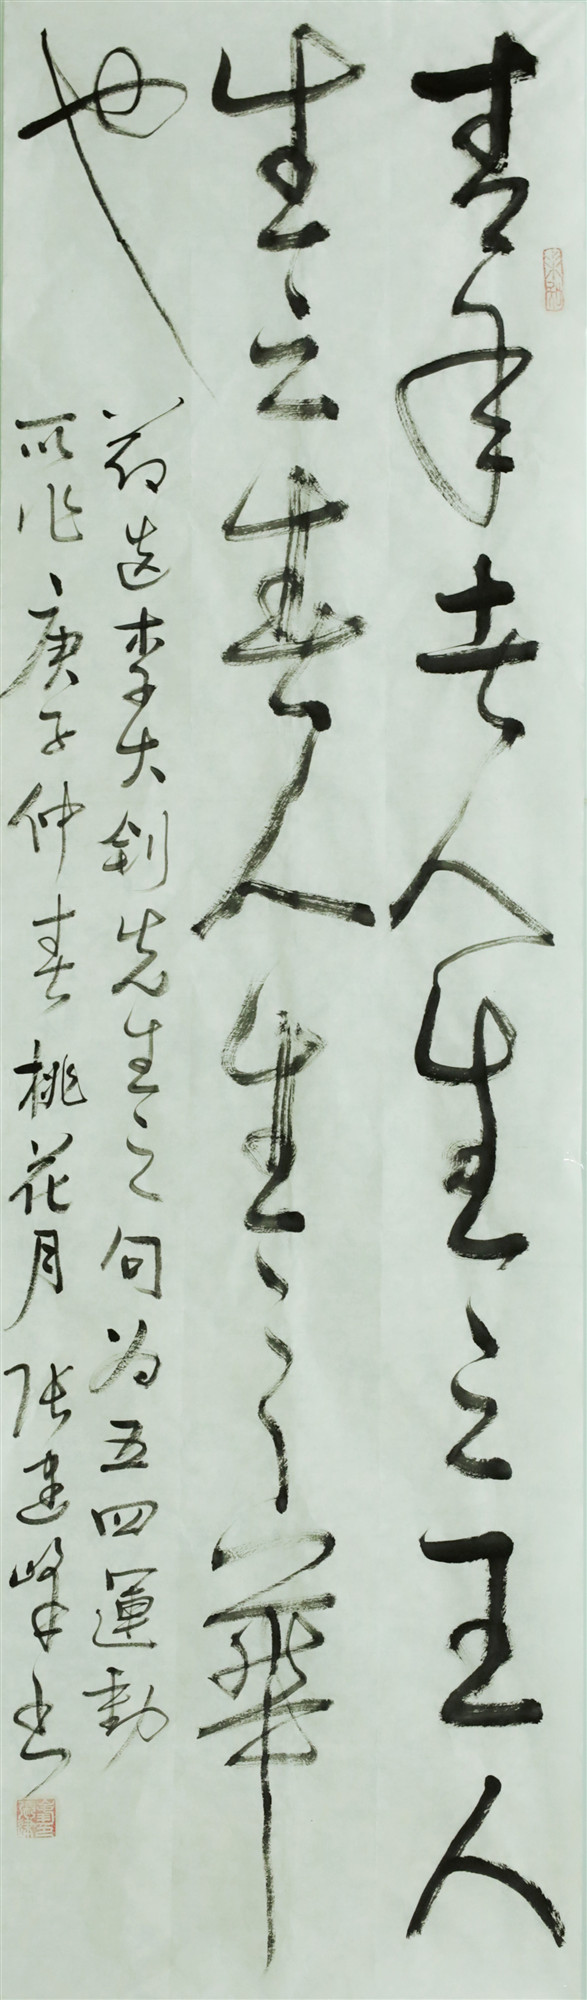 青年者人生之王人
生之春人生之華
也
节选李大钊先生之句为五四運動
所作庚子仲春桃花月张建峰书